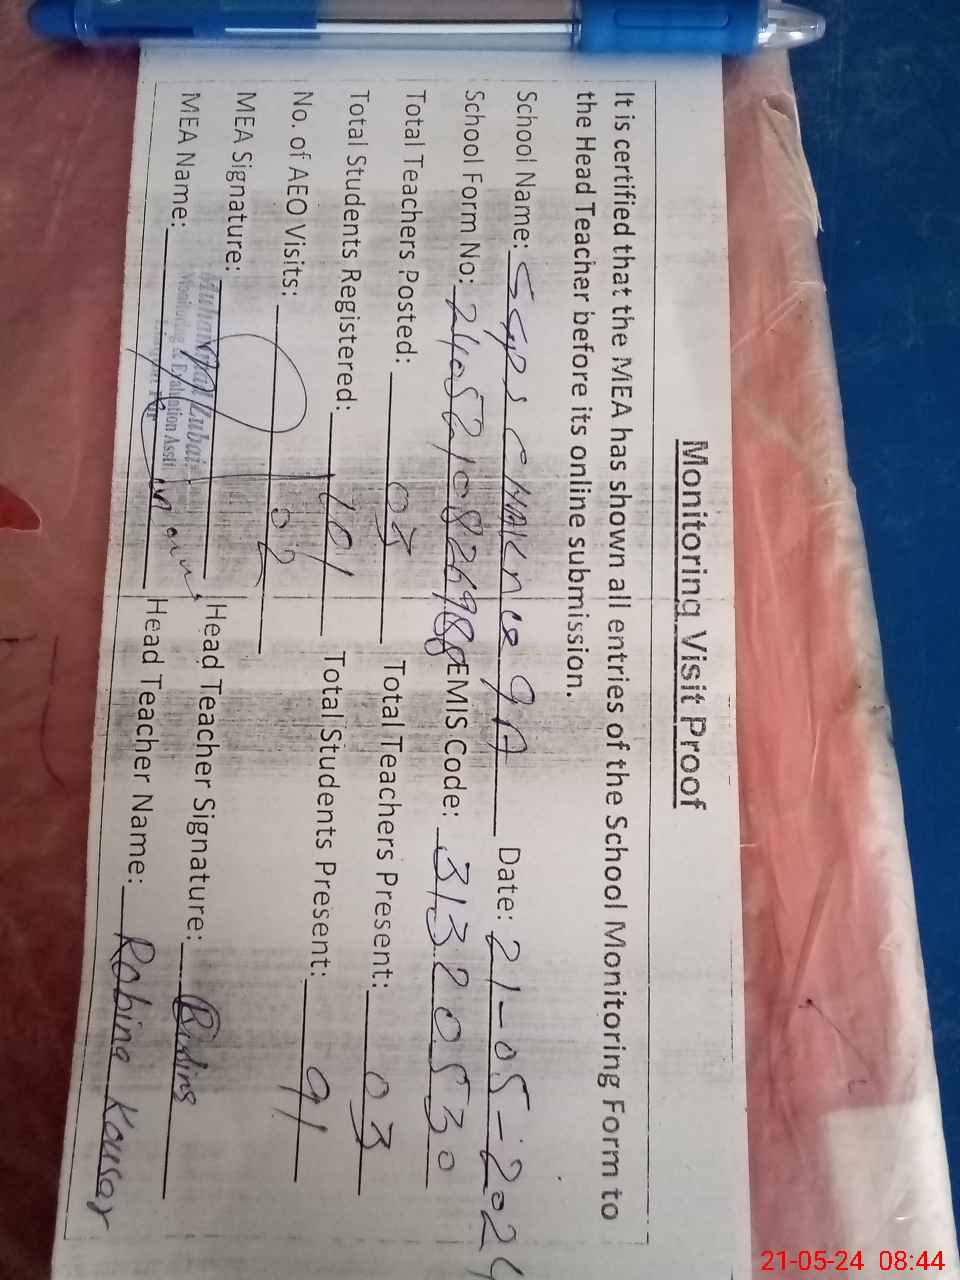 Monitoring Visit Proof
It is certified that the MEA has shown all entries of the School Monitoring Form to
the Head Teacher before its online submission.
School Name: SGPS CHAK NO 9A Date: 21-05-2024
School Form No: EMIS Code: 31320530
Total Teachers Posted: 03 Total Teachers Present: 03
Total Students Registered: 101 Total Students Present: 91
No. of AEO Visits: 02
MEA Signature: Head Teacher Signature: Robina
MEA Name: Head Teacher Name: Robina Kousar
Muhammad Zubair
Monitoring & Evaluation Asstt
21-05-24 08:44